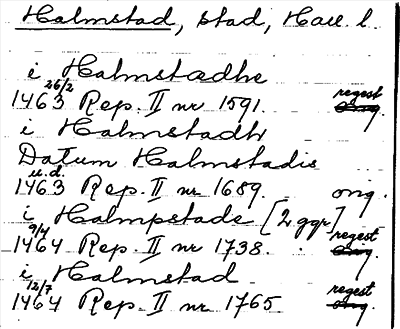 Halmstad, stad, Hall. l.
i Halmstædhe
1463 26/2 Rep. II nr 1591. regest
i Halmstadh
Datum Halmstadis
1463 u.d. Rep. II nr 1689. orig.
i Halmpstade [2 ggr]
1464 9/4 Rep. II nr 1738. regest
i Halmstad
1464 12/7 Rep. II nr 1765 regest